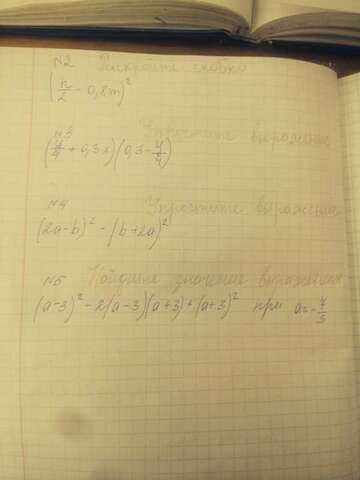 №2 Раскройте скобки
(n/2 - 0,8m)²
№3 Упростите выражение
(y/4 + 0,3x)(0,3 - y/4)
№4 Упростите выражение
(2a-b)² - (b+2a)²
№5 Найдите значение выражения
(a-3)² - 2(a-3)(a+3) + (a+3)² при a=-7/3